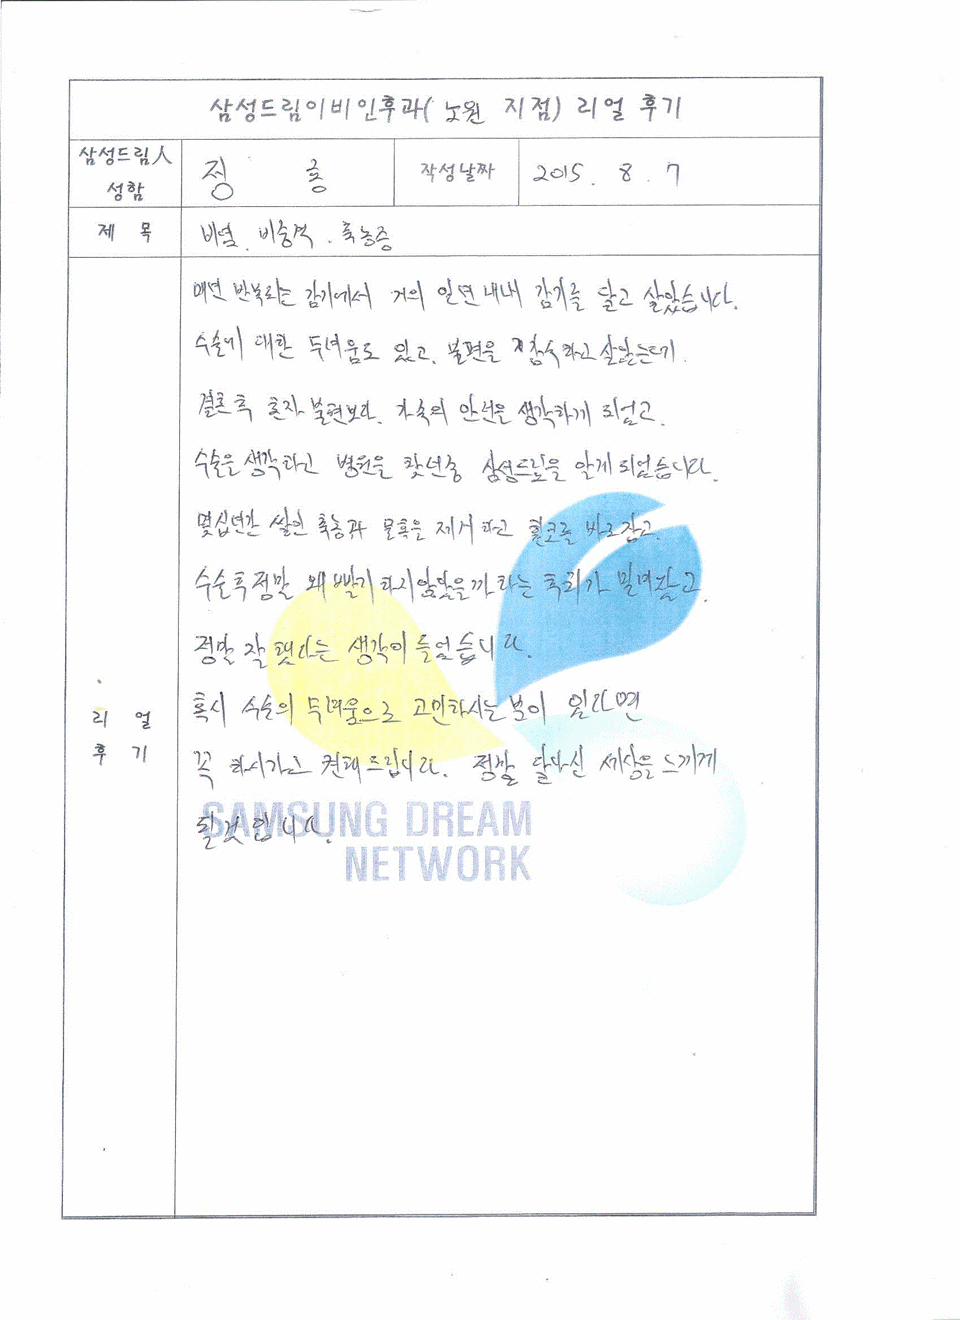 삼성드림이비인후과( 노원 지점) 리얼 후기
삼성드림人 성함
정 홍
작성날짜
2015. 8. 7
제 목
비염. 비중격. 축농증
매년 반복되는 감기에서 거의 일년내내 감기를 달고 살았습니다.
수술에 대한 두려움도 있고, 불편을 감수하고 살았는데
결혼후 혼자 불편보다. 가족의 안녕을 생각하게 되었고.
수술을 생각하고 병원을 찾던중 삼성드림을 알게되었습니다.
몇십년간 쌓인 축농과 물혹을 제거 하고 휜코를 바로잡고.
수술후 정말 왜 빨리 하지않았을까 하는 후회가 밀려왔고.
정말 잘 했다는 생각이 들었습니다.
혹시 수술의 두려움으로 고민하시는 분이 있다면
꼭 하시라고 권해드립니다. 정말 달라진 세상을 느끼게
될것 입니다.
리 얼
후 기
SAMSUNG DREAM
NETWORK